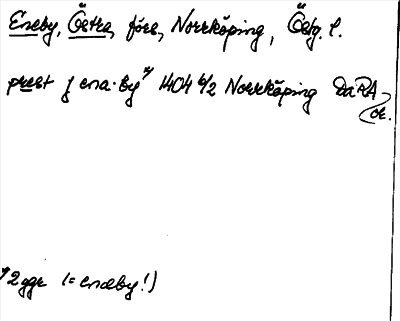 Eneby, Östra, förs, Norrköping, Östg. l.
prest j ena.by *) 1404 6/2 Norrköping DaRA
or.
*) 2 ggr (= enæby!)